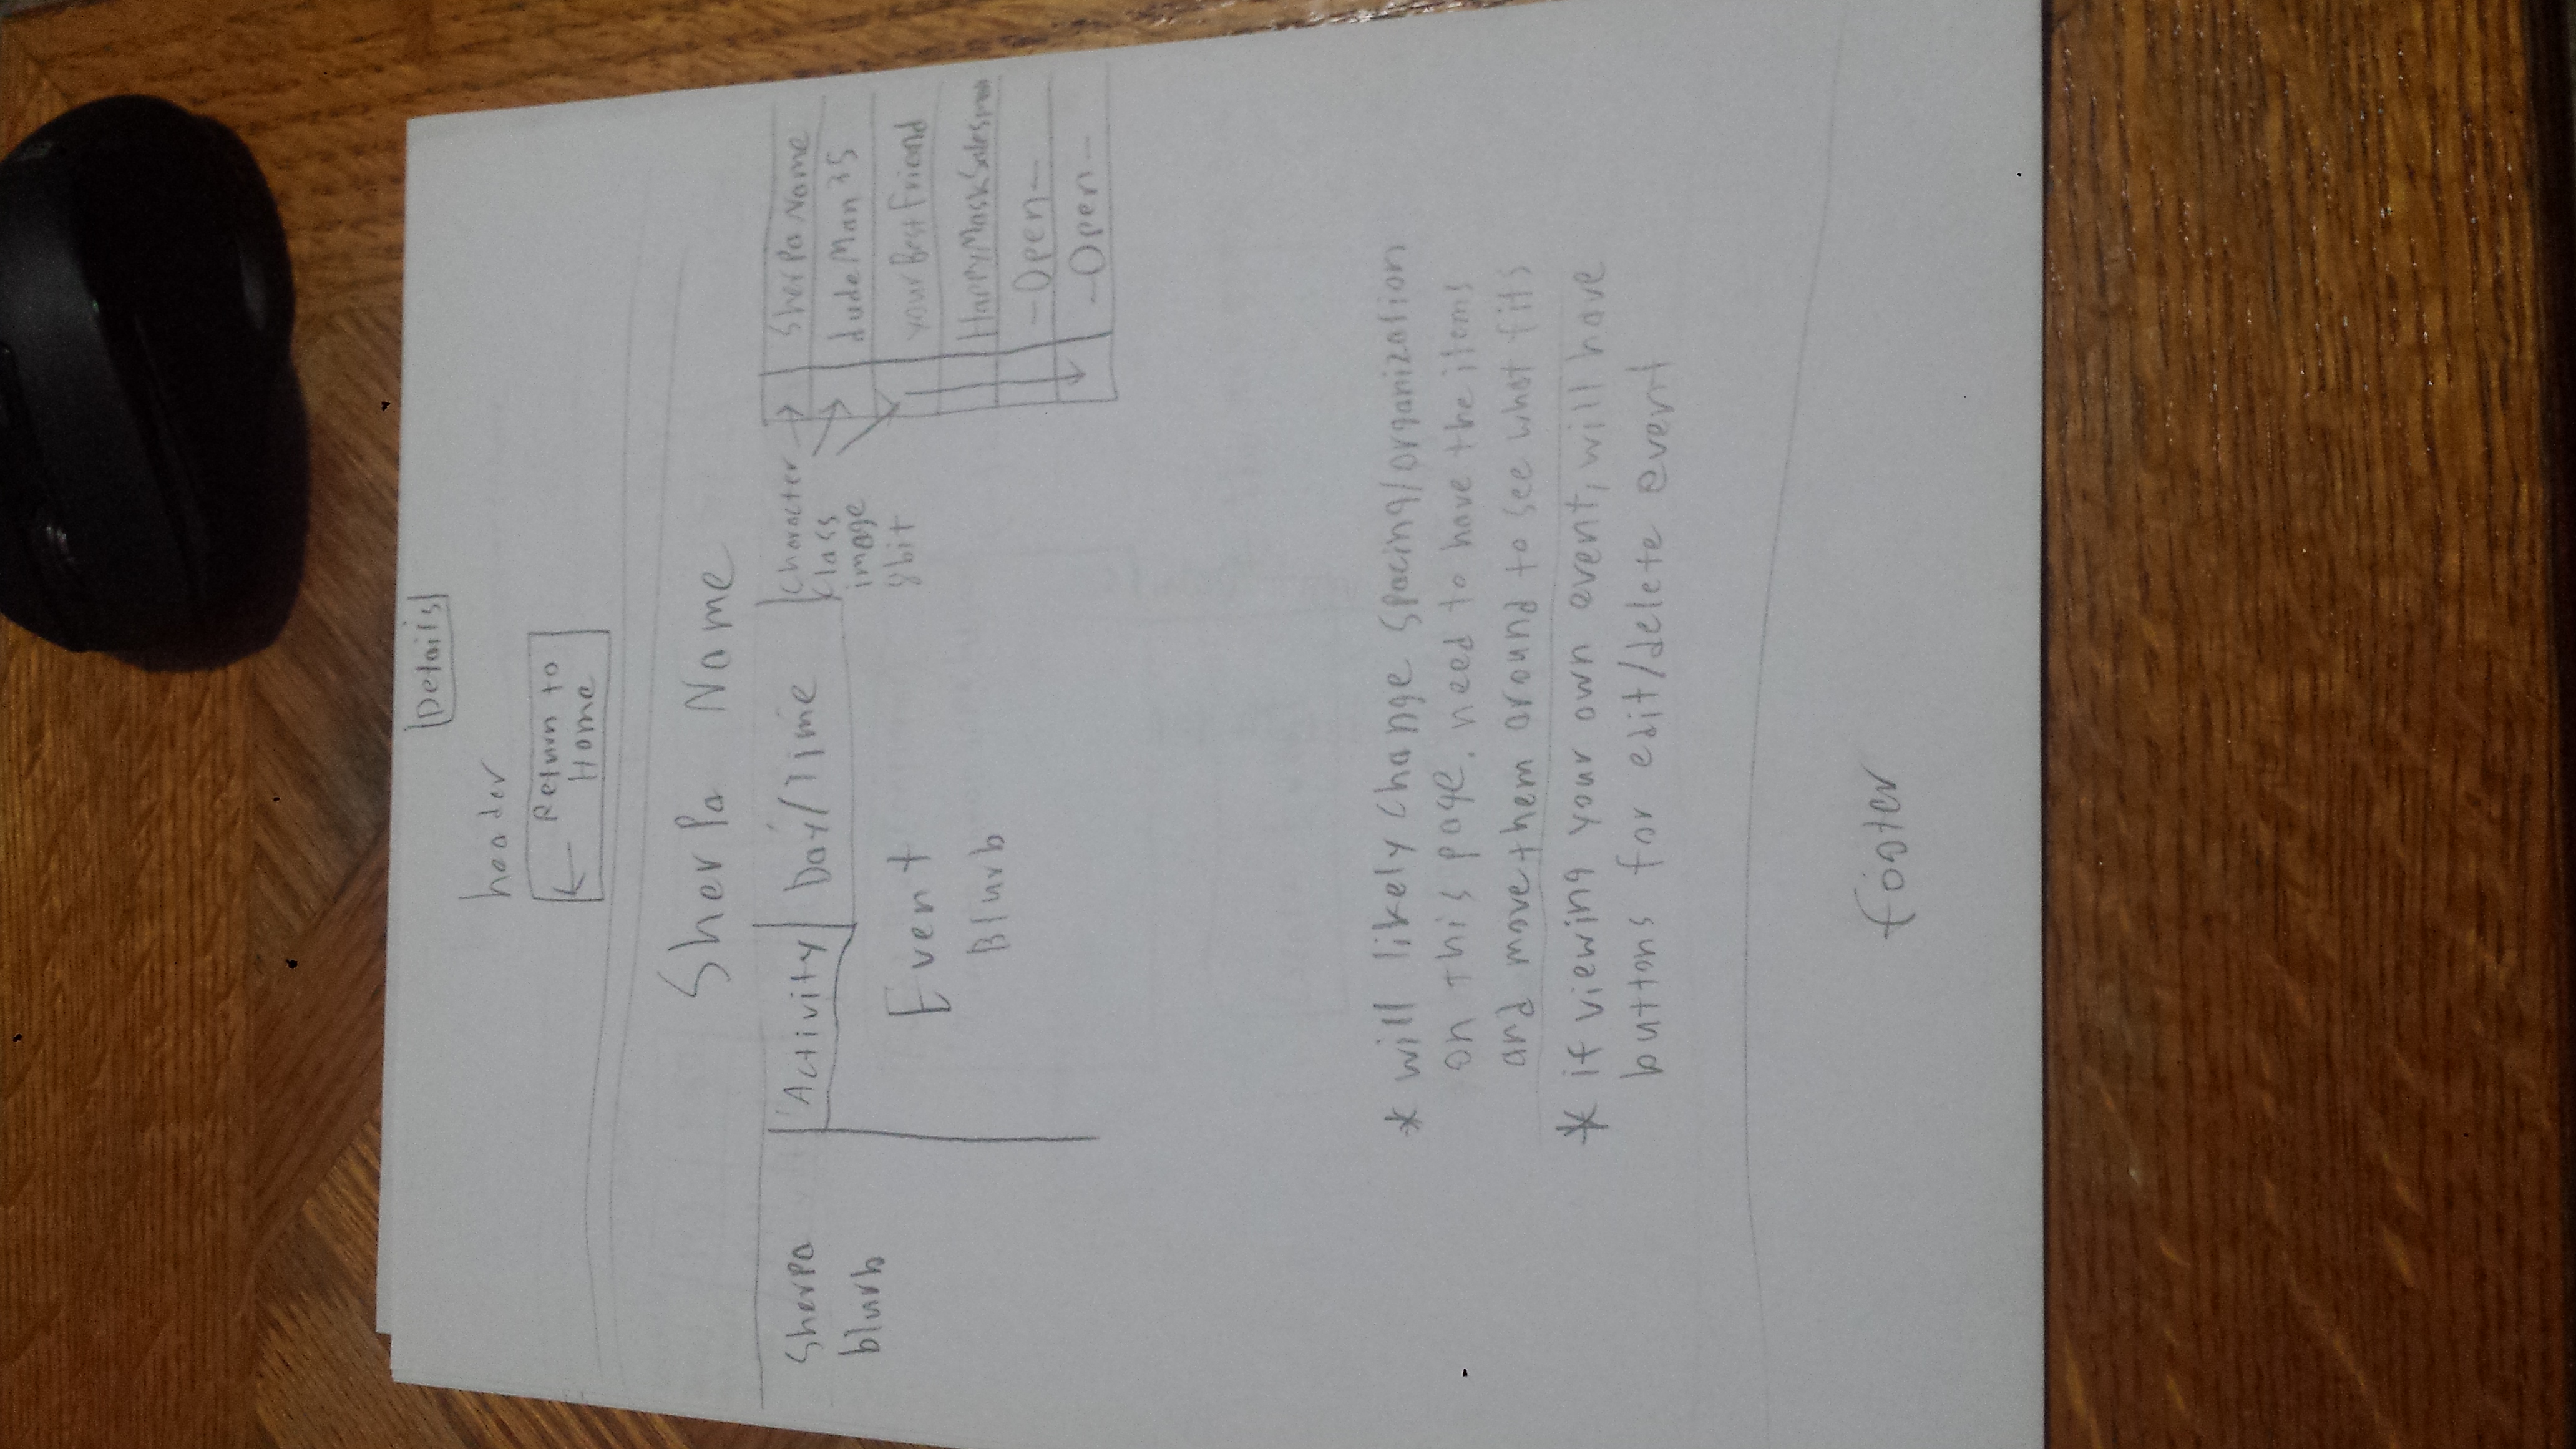 Details
header
← Return to
Home
Sherpa Name
Sherpa
blurb
Activity
Day/Time
Event
Blurb
Character
class
image
8bit
Sherpa Name
dudeMan35
yourBestFriend
HappyMaskSalesman
-Open-
-Open-
* will likely change spacing/organization
on this page. need to have the items
and move them around to see what fits
* if viewing your own event, will have
buttons for edit/delete event
footer